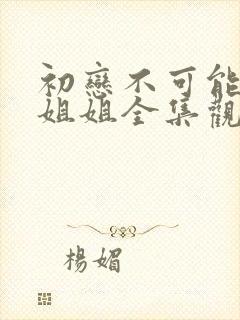 初戀不可能
姐姐全集觀
楊媚